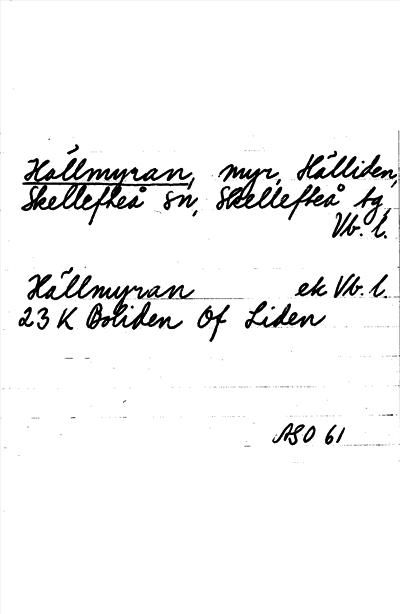 Hällmyran, myr, Hälliden,
Skellefteå sn, Skellefteå tg,
Vb. l.
Hällmyran ek Vb. l.
23 K Boliden Of Liden
ASO 61